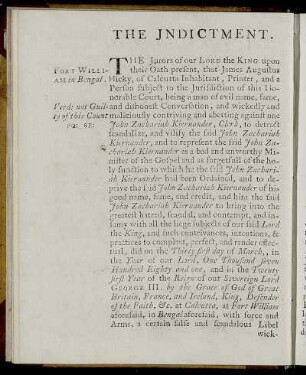 THE JNDICTMENT.
FORT WILLI-
AM in Bengal.
Verdi: not Guil-
ty of this Count
THE Jurors of our LORD the KING upon
their Oath present, that James Augustus
Hicky, of Calcutta Inhabitant, Printer, and a
Person subject to the Jurisdiction of this Ho-
norable Court, being a man of evil name, fame,
and dishonest Conversation, and wickedly and
maliciously contriving and abetting against one
John Zachariah Kiernander, Clerk, to detract
scandalize, and vilify the said John Zachariah
Kiernander, and to represent the said John Za-
chariah Kiernander as a bad and unworthy Mi-
nister of the Gospel and as forgetfull of the ho-
ly function to which he the said John Zachari-
ah Kiernander had been Ordained, and to de-
prave the said John Zachariah Kiernander of his
good name, fame, and credit, and him the said
John Zachariah Kiernander to bring into the
greatest hatred, scandal, and contempt, and in-
famy with all the liege subjects of our said Lord
the King, and such contrivances, intentions, &
practices to complete, perfect, and render effec-
tual, did on the Thirty first day of March, in
the Year of our Lord, One Thousand seven
Hundred Eighty and one, and in the Twenty
first Year of the Reign of our Sovereign Lord
GEORGE III. by the Grace of God of Great
Britain, France, and Ireland, King, Defender
of the Faith, &c. at Calcutta, at Fort William
aforesaid, in Bengal aforesaid, with force and
Arms, a certain false and scandalous Libel
wick-